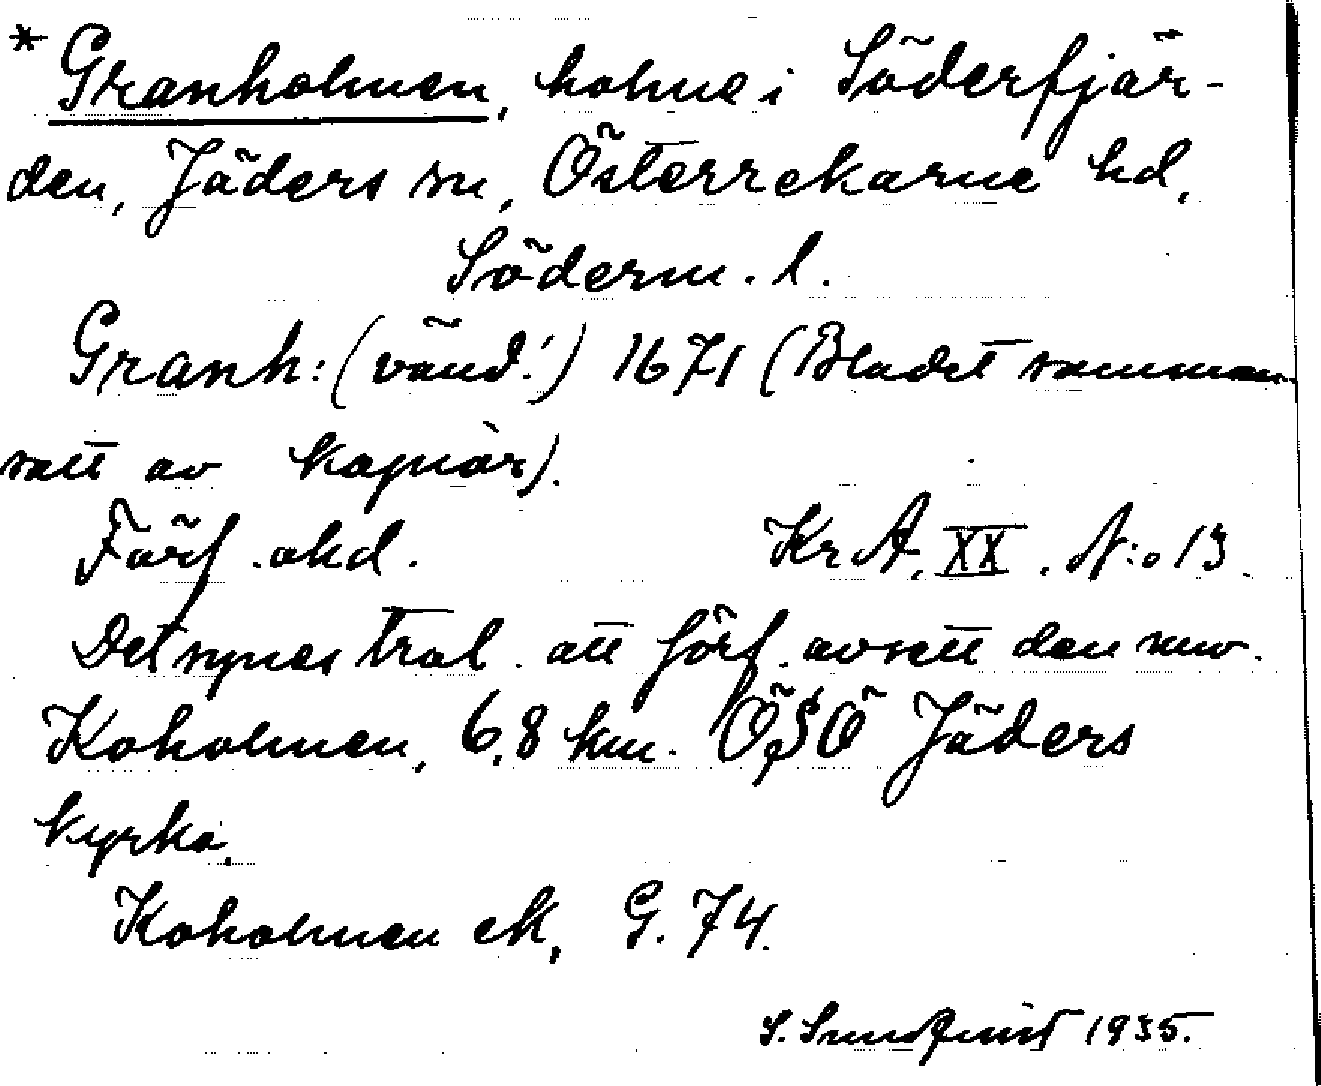 * Granholmen, holme i Söderfjär-
den, Jäders sn, Österrekarne hd,
Söderm. l.
Granh: (vänd!) 1671 (Bladet samman
satt av kopior).
Förf. okd. Kr A, XX. N:o 13.
Det synes trol. att förf. avsett den nuv.
Koholmen, 6,8 km. ÖSÖ Jäders
kyrka.
Koholmen ek, G. 74.
S. Sundqvist 1935.